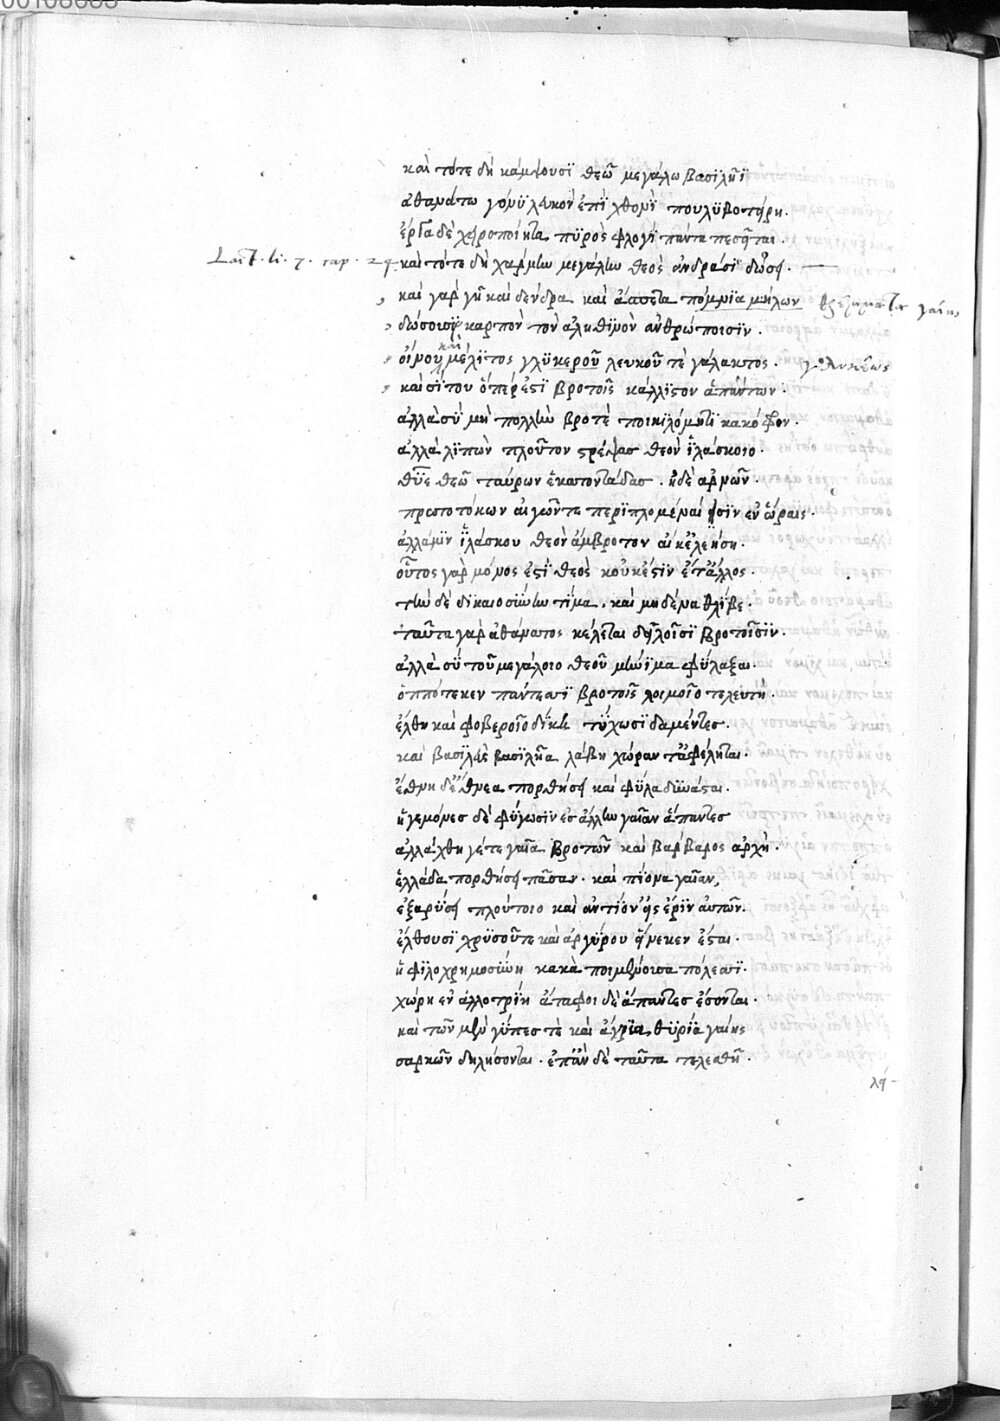 00108685
καὶ τότε δὴ κάμψουσϊ θεῶ μεγάλω βασιλῆϊ
ἀθανάτω γόνϋ λευκὸν ἐπὶ χθονὶ πουλϋβοτείρη.
ἔργα δὲ χειροποίητα πϋρὸς φλογὶ πάντα πεσεῖται.
Lact. li. 7. cap. 24. καὶ τότε δὴ χάρμην μεγάλην θεὸς ἀνδράσι δώσει.
καὶ γὰρ γῆ καὶ δένδρα καὶ ἄσπετα ποίμνια μήλων θρέμματα γαίης
δώσουσϊ καρπὸν τὸν ἀληθινὸν ἀνθρώποισϊν.
οἴνου καὶ μέλϊτος γλϋκεροῦ λευκοῦ τὲ γάλακτος.
καὶ σίτου ὅπερ ἐστὶ βροτοῖς κάλλϊστον ἁπάντων.
ἀλλὰ σὺ μὴ μέλλων βροτὲ ποικιλόμητϊ κακόφρον.
ἀλλὰ λϊπὼν πλοῦτον στρέψας θεὸν ἵλάσκοιο.
θῦε θεῶ ταύρων ἑκατοντάδας. ἠδὲ ἀρνῶν.
πρωτοτόκων αἰγῶν τε περϊπλομέναισϊν ἐν ὥραις.
ἀλλά μϊν ἵλάσκου θεὸν ἄμβροτον αἴ κ' ἐλεήση.
οὗτος γὰρ μόνος ἐστὶ θεὸς κοὐκ ἔστϊν ἔτ' ἄλλος.
τὴν δὲ δϊκαιοσύνην τίμα. καὶ μηδένα θλῖβε.
ταῦτα γὰρ ἀθάνατος κέλεται δειλοῖσϊ βροτοῖσϊν.
ἀλλὰ σὺ τοῦ μεγάλοιο θεοῦ μήνϊμα φϋλαξαι.
ὁππότε κεν πάντεσσϊ βροτοῖς λοιμοῖο τελευτὴ.
ἔλθη καὶ φοβεροῖο δίκης τύχωσϊ δαμέντες.
καὶ βασϊλεὺς βασϊλῆα λάβη χώραν τ' ἀφέληται.
ἔθνη δ' ἔθνεα πορθήσει καὶ φῦλα δϋνάσται.
ἡγεμόνες δὲ φύγωσϊν ἐς ἄλλην γαῖαν ἅπαντες
ἀλλάχθη γέ τε γαῖα βροτῶν καὶ βάρβαρος ἀρχὴ.
ἑλλάδα πορθήσει πᾶσαν. καὶ πίονα γαῖαν,
ἐξαρύσει πλούτοιο καὶ ἀντίον εἰς ἔρϊν αὐτῶν.
ἔλθουσϊ χρϋσοῦ τε καὶ ἀργύρου εἵνεκεν ἔσται.
ἡ φϊλοχρημοσύνη κακὰ ποιμαίνουσα πόλεσσϊ.
χώρη ἐν ἀλλοτρίη ἄταφοι δὲ ἅπαντες ἔσονται.
καὶ τῶν μὲν γῦπές τὲ καὶ ἄγρια θηρία γαίης
σαρκῶν δηλήσονται. ἐπὰν δὲ ταῦτα τελεσθῆ.